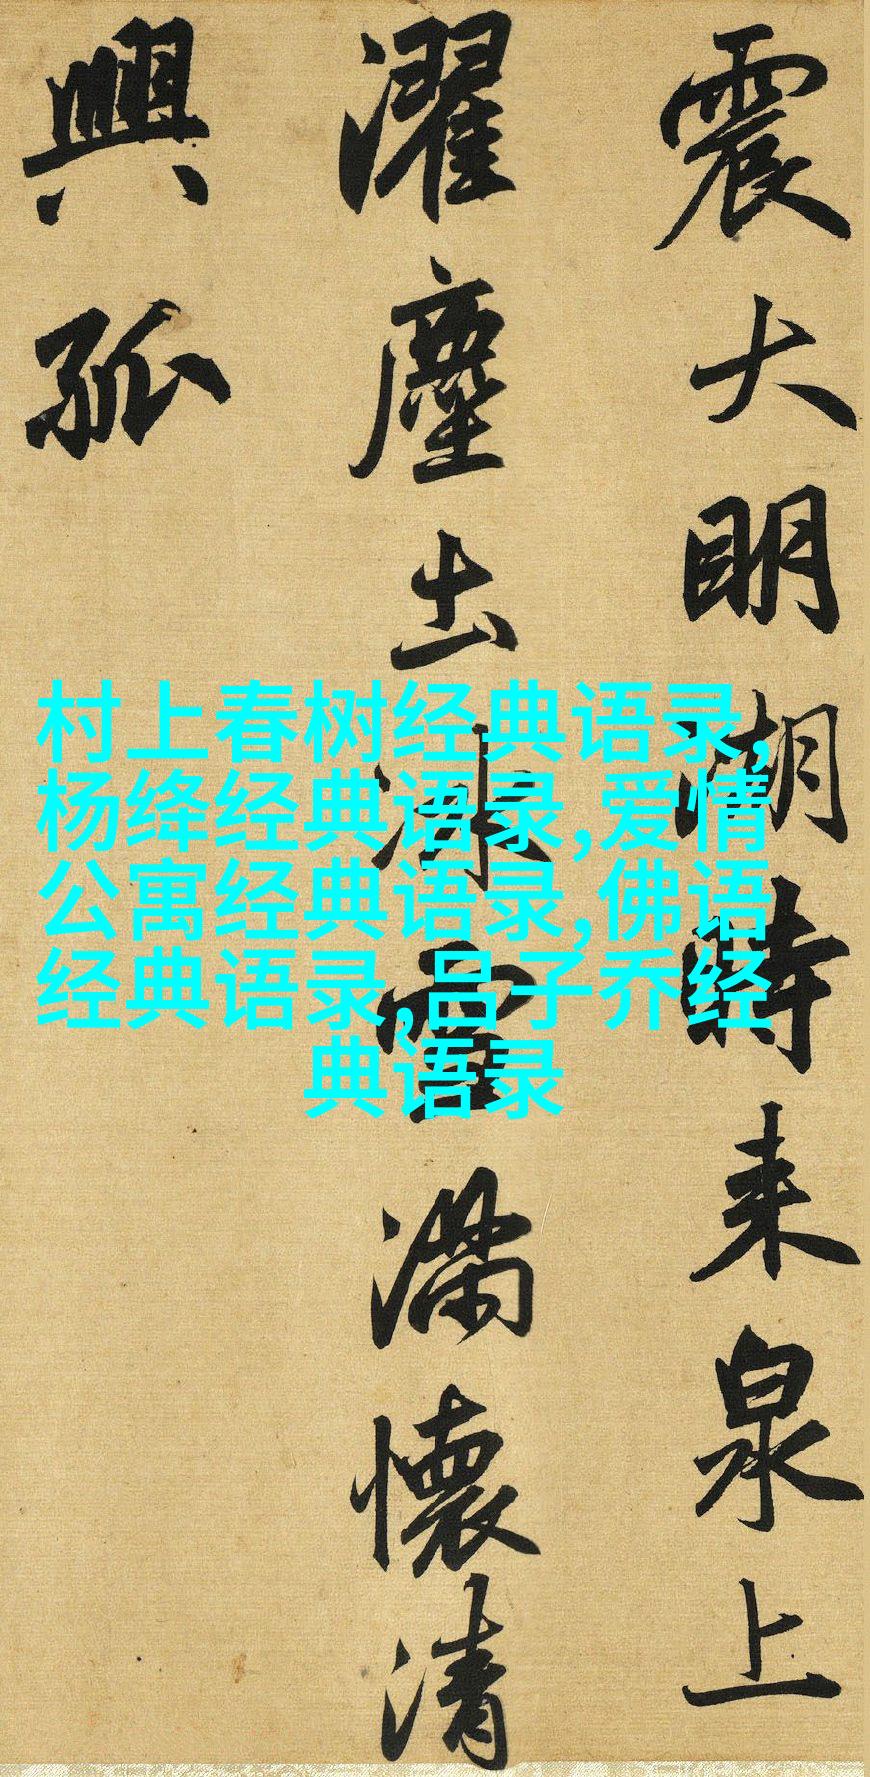 震大明湖時来泉上
濯塵土冰雪滿懷清
興孤
村上春树经典语录,
杨绛经典语录,爱情
公寓经典语录,佛语
经典语录,吕子乔经
典语录